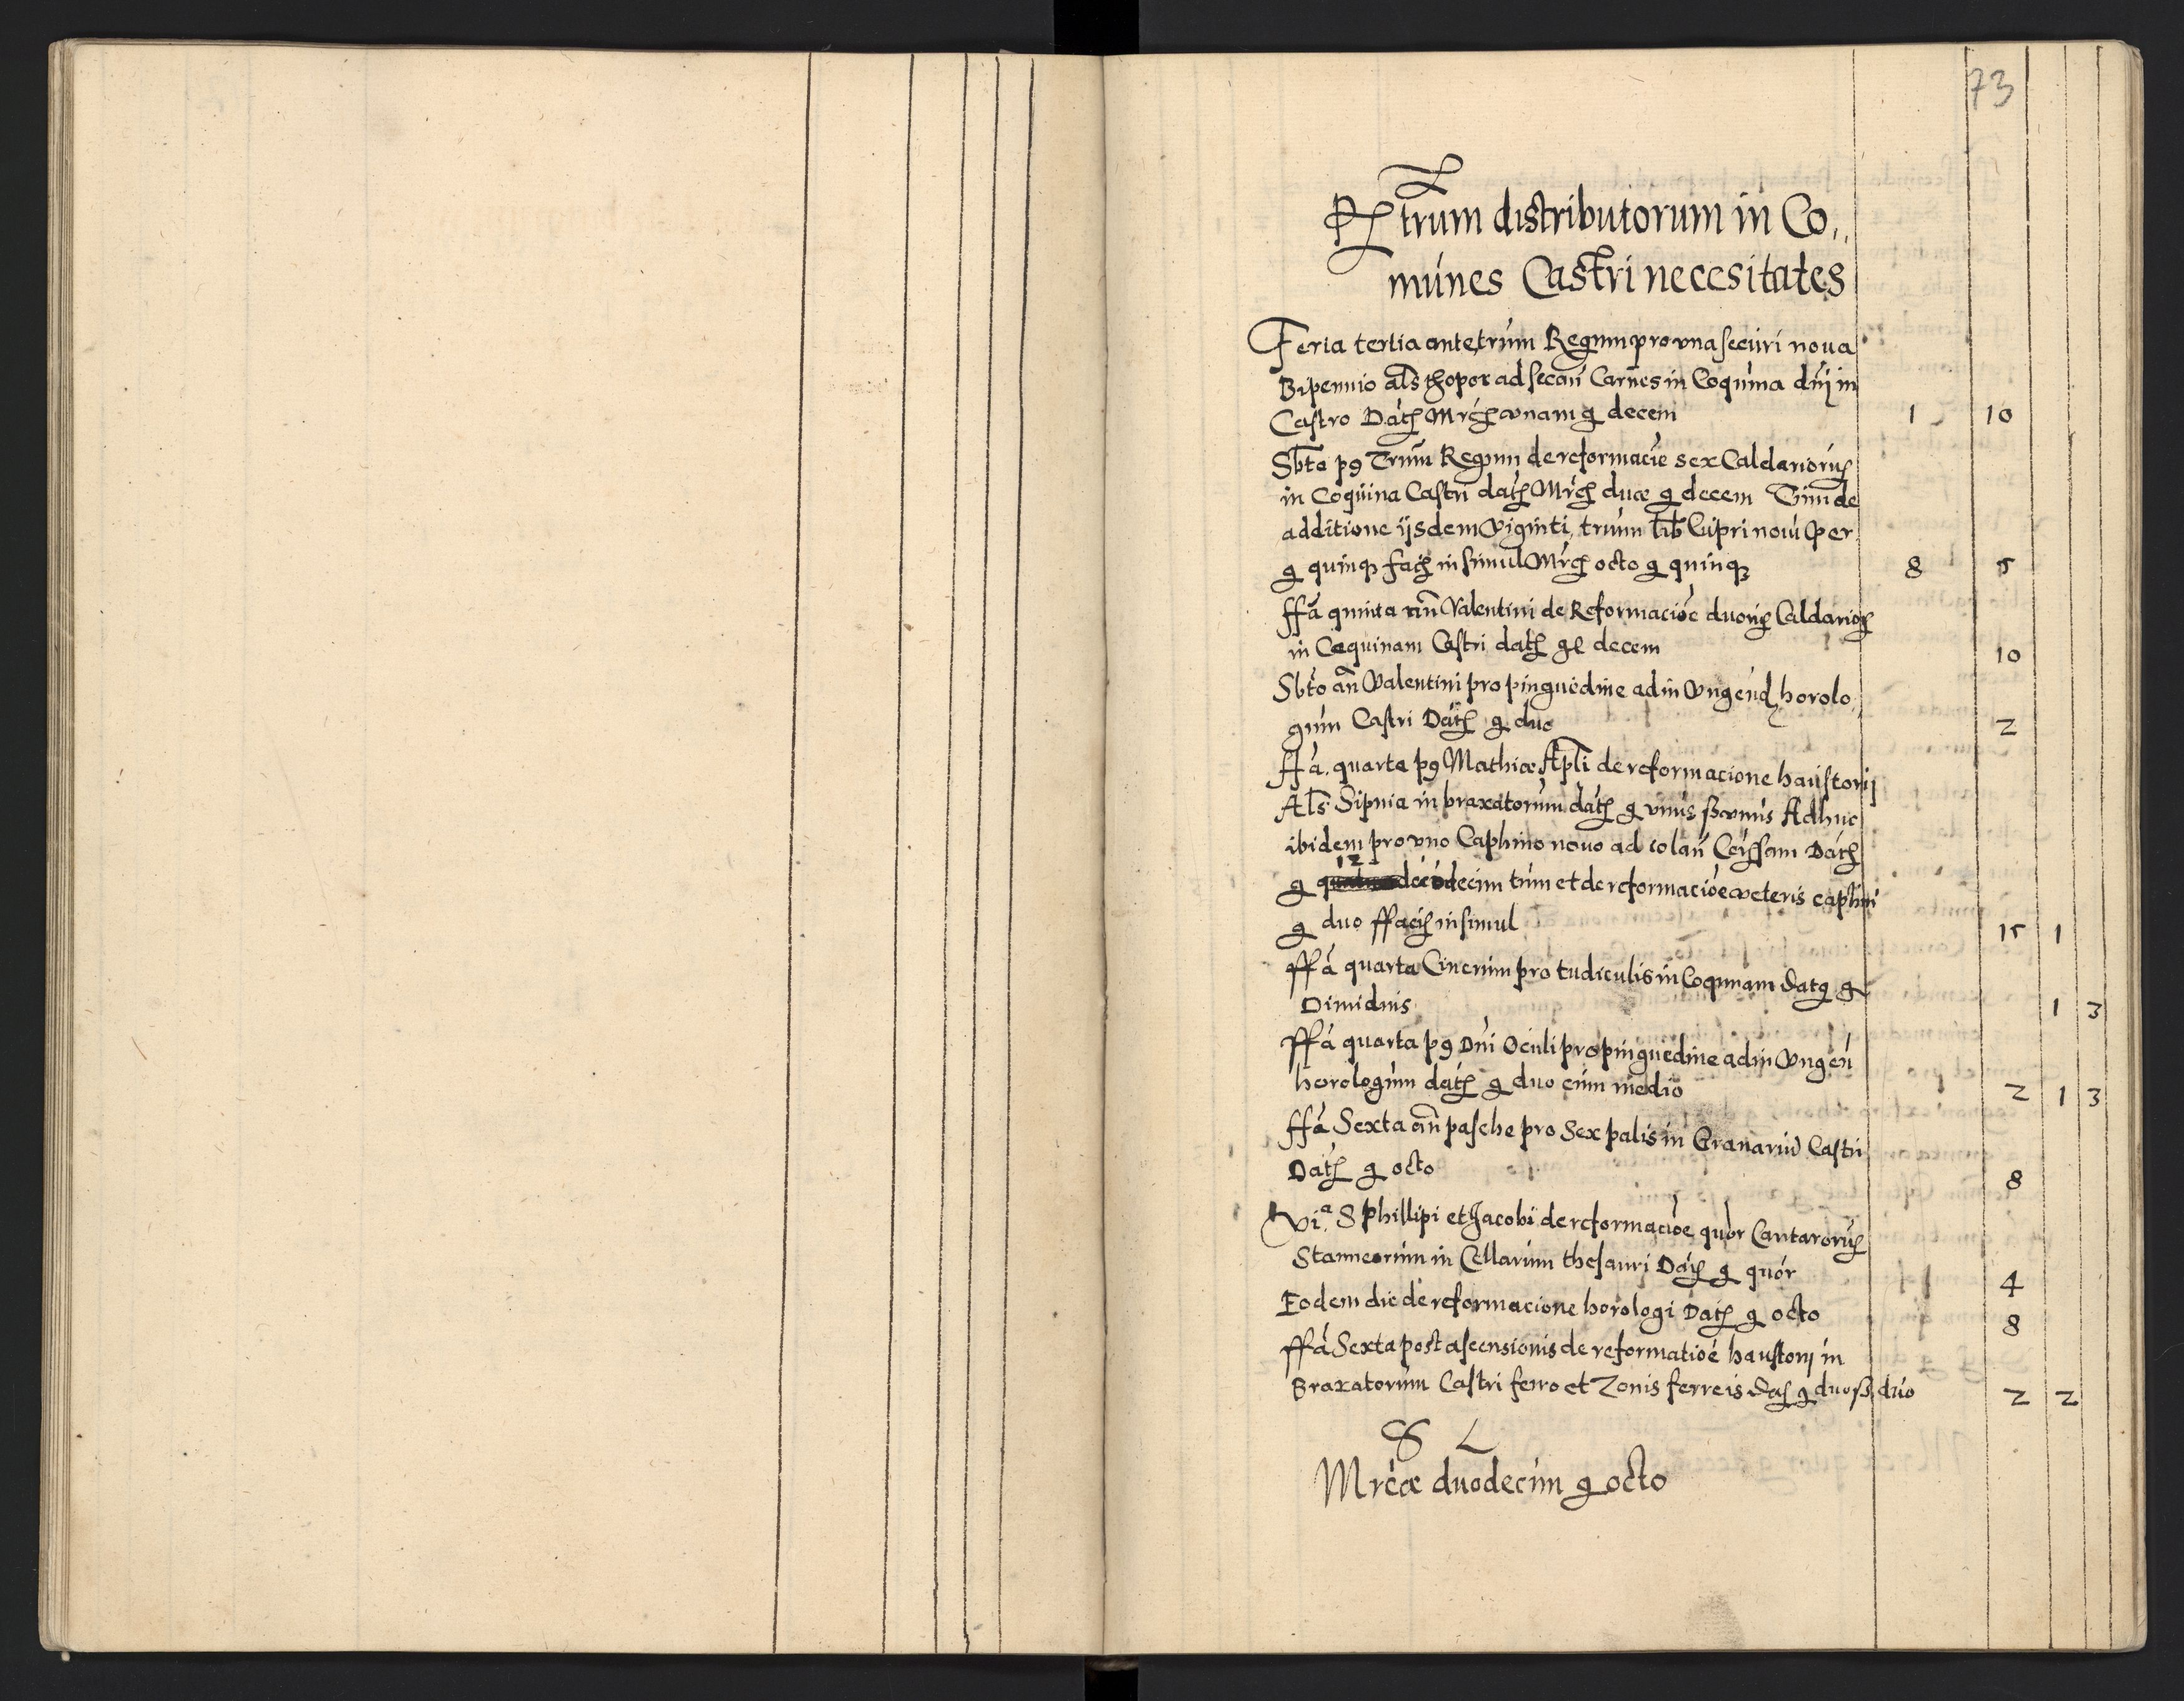 73
Rtrum distributorum in Co,,
munes Castri necesitates
Feria tertia ante trium Regum pro una securi noua
Bipennio als thopor ad secan Carnes in Coquina dnj in
Castro Dat Mrc unam g decem 1 10
Sbto p9 Trium Regum de reformacie sex Caldariorum
in Coquina Castri dat Mrc duæ g decem Tum de
additione ijsdem Viginti trium lib Cupri noui Per
g quinq fac in simul Mrc octo g quinq 8 5
ffa quinta an Valentini de Reformacioe duoru Caldarior
in Coquinam Castri dat gl decem 10
Sbto an Valentini pro pinguedine ad in Ungend horolo
gium Castri Dat g duo 2
ffa quarta p9 Mathiæ Apli de reformacione haustorij
Als Sipnia in braxatorium dat g unus ß unus Adhuc
ibidem pro uno Caphino nouo ad colan Ceruisam Dat
12
g decim tum et de reformacioe veteris caphini
g duo ffacis insimul 15 1
ffa quarta Cinerum pro tudiculis in Coquinam datg g
Dimidius 1 3
ffa quarta p9 Dni Oculi pro pinguedine ad in Ungen
horologium dat g duo cum medio 2 1 3
ffa Sexta an pasche pro Sex palis in Granariu Castri
Dat g octo 8
Via S Phillipi et Jacobi de reformacioe quor Cantaroru
Stanneorum in Cellarium thesauri Dat g quor 4
Eodem die de reformacione horologi Dat g octo 8
ffa Sexta post ascensionis de reformatioe haustorij in
Braxatorium Castri ferro et Zonis ferreis dat g duo ß duo 2 2
S L
Mrcæ duodecim g octo